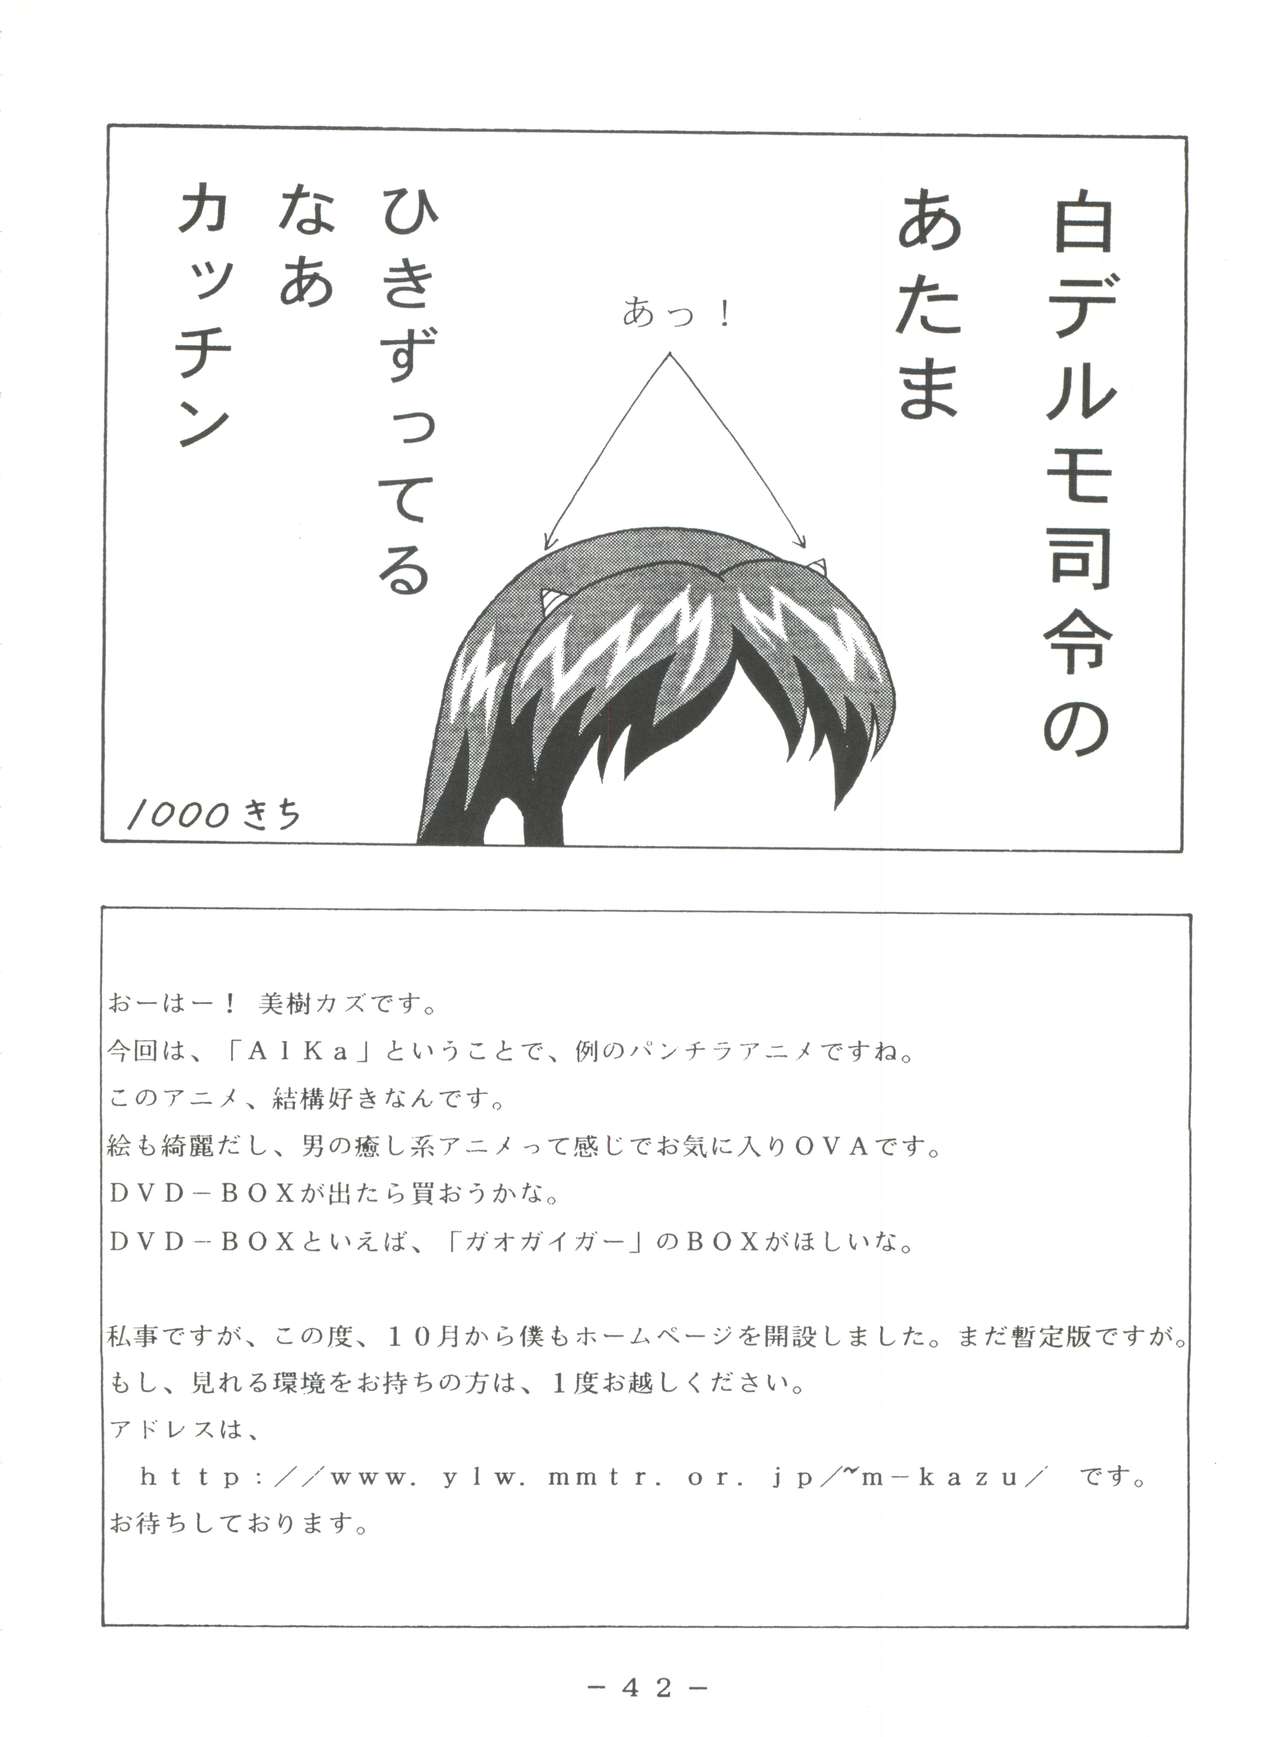 白デルモ司令の
あたま
あっ！
ひきずってる
なあ
カッチン
1000きち
おーはー！ 美樹カズです。
今回は、「ＡｌＫａ」ということで、例のパンチラアニメですね。
このアニメ、結構好きなんです。
絵も綺麗だし、男の癒し系アニメって感じでお気に入りＯＶＡです。
ＤＶＤ－ＢＯＸが出たら買おうかな。
ＤＶＤ－ＢＯＸといえば、「ガオガイガー」のＢＯＸがほしいな。
私事ですが、この度、１０月から僕もホームページを開設しました。まだ暫定版ですが。
もし、見れる環境をお持ちの方は、１度お越しください。
アドレスは、
ｈｔｔｐ：／／ｗｗｗ．ｙｌｗ．ｍｍｔｒ．ｏｒ．ｊｐ／~ｍ－ｋａｚｕ／　です。
お待ちしております。
－４２－